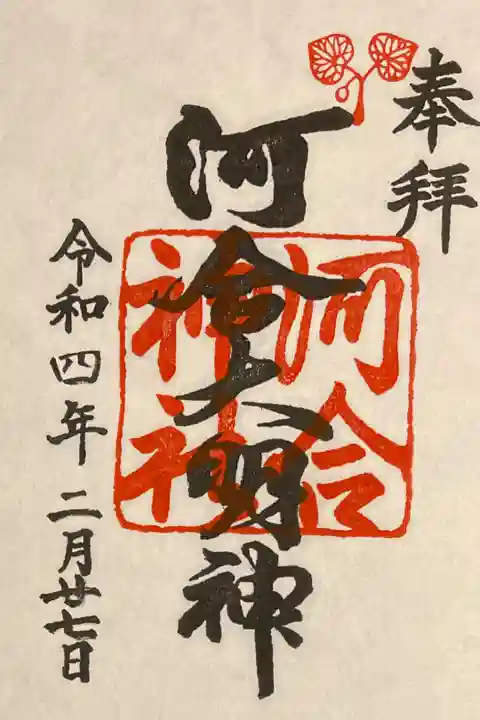 奉拝
河合大明神
河合
神社
令和四年二月廿七日